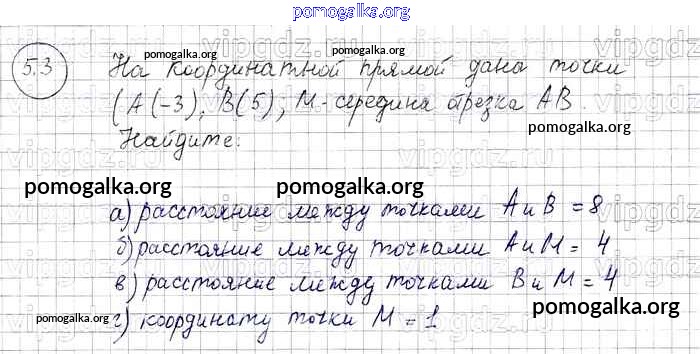 pomogalka.org
5.3 На координатной прямой дана точки
pomogalka.org pomogalka.org
(А(-3), В(5), М-середина отрезка АВ.
Найдите: pomogalka.org
pomogalka.org pomogalka.org
а) расстояние между точками А и В = 8
б) расстояние между точками А и М = 4
в) расстояние между точками В и М = 4
pomogalka.org pomogalka.org pomogalka.org
г) координату точки М = 1